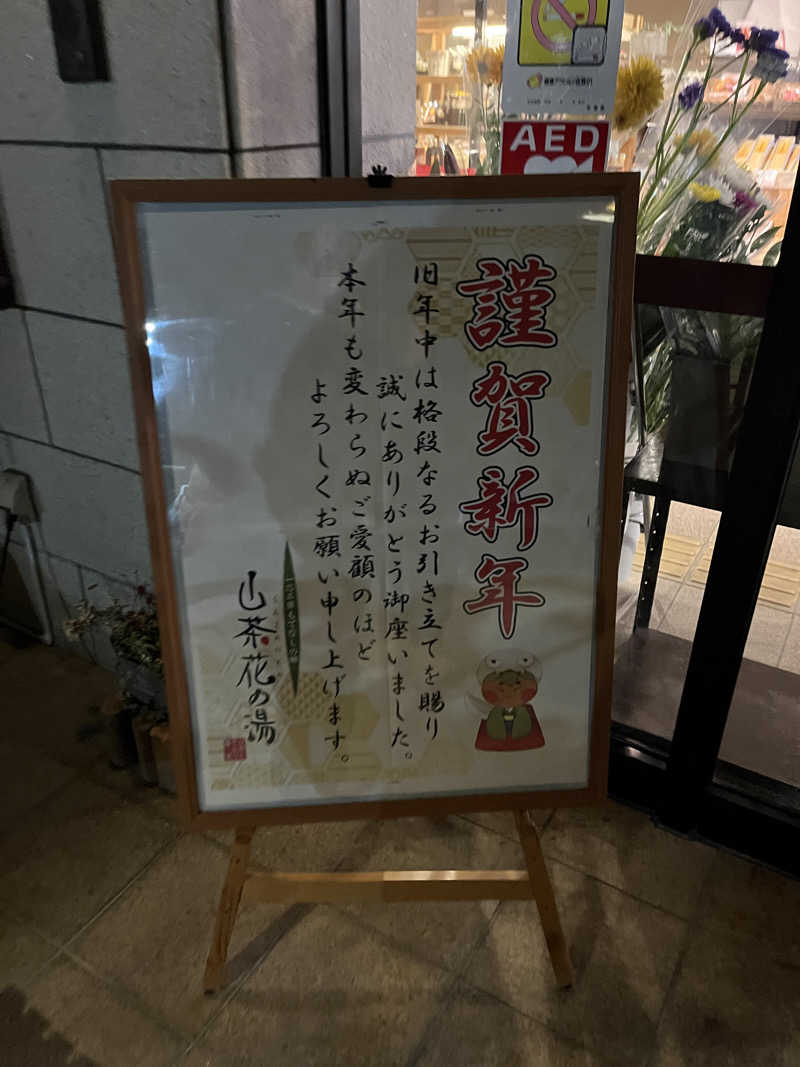 謹賀新年
旧年中は格段なるお引き立てを賜り
誠にありがとう御座いました。
本年も変わらぬご愛顧のほど
よろしくお願い申し上げます。
山茶花の湯
AED